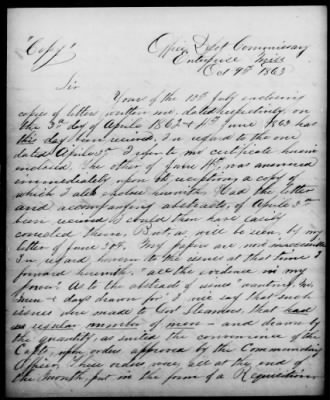 "Copy"
Office Post Commissary
Enterprise Miss
Oct 9th 1863
Sir
Yours of the 18th July enclosing
copies of letters written me, dated respectively on
the 3d day of April 1863 & 4th June 1863 has
this day been received, In regard to the one
dated April 3d I refer to my certificate herein
enclosed. The other of June 4th was answered
immediately upon its reception a copy of
which I also enclose herewith. Had the letter
and accompanying abstracts, of April 3d
been received I could then have easily
corrected them. But, as will be seen, by my
letter of June 30th. My papers are now inaccessible
In regard, however to the issues at that time I
forward herewith, all the evidence in my
power. As to the abstracts of issues "wanting, No.
men & days drawn for" I will say that such
issues were made to Gov Steamers, that had
no regular number of men and drawn by
the quantity, as suited the convenience of the
Capts, upon orders approved by the Commanding
Officer. These orders were, all at the end of
the month, put in the form of a Requisition